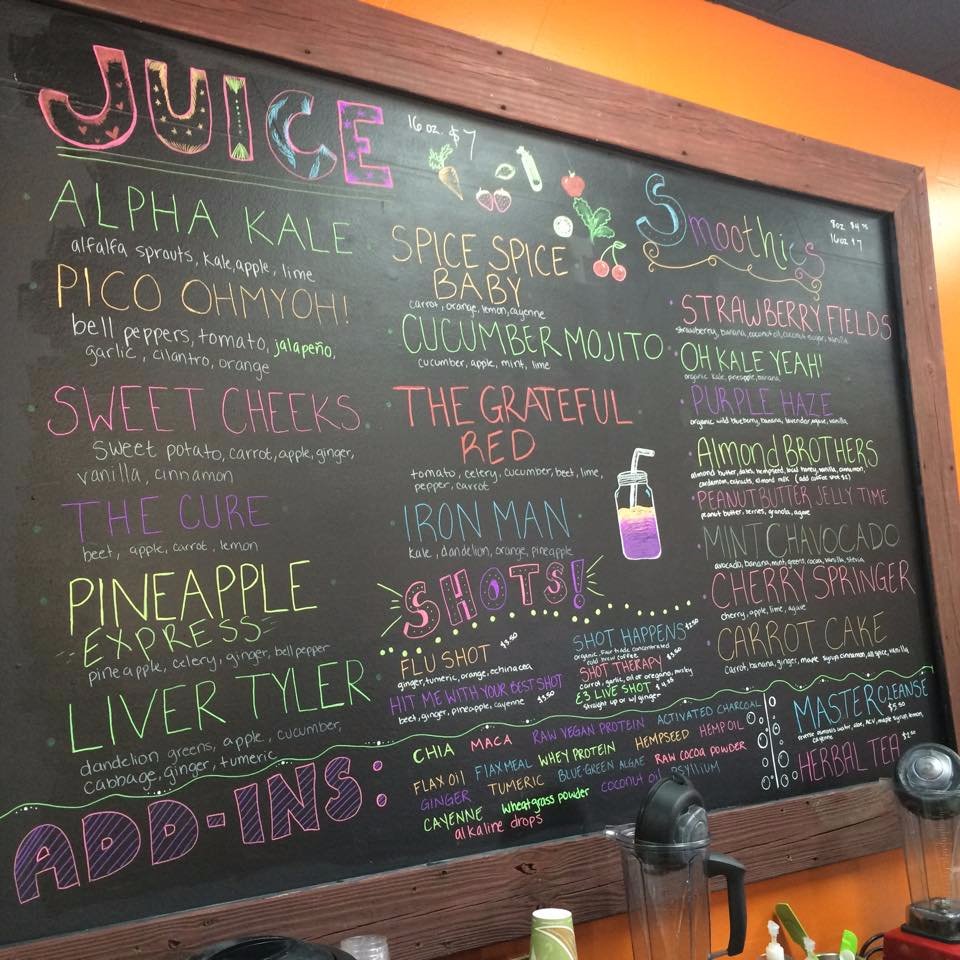 JUICE
16 oz. $7
ALPHA KALE
alfalfa sprouts, kale, apple, lime
PICO OHMYOH!
bell peppers, tomato, jalapeño,
garlic, cilantro, orange
SWEET CHEEKS
sweet potato, carrot, apple, ginger,
vanilla, cinnamon
THE CURE
beet, apple, carrot, lemon
PINEAPPLE
EXPRESS
pineapple, celery, ginger, bell pepper
LIVER TYLER
dandelion greens, apple, cucumber,
cabbage, ginger, tumeric
SPICE SPICE
BABY
carrot, orange, lemon, cayenne
CUCUMBER MOJITO
cucumber, apple, mint, lime
THE GRATEFUL
RED
tomato, celery, cucumber, beet, lime,
pepper, carrot
IRON MAN
kale, dandelion, orange, pineapple
SHOTS!
FLU SHOT $3.50
ginger, tumeric, orange, echinacea
HIT ME WITH YOUR BEST SHOT
beet, ginger, pineapple, cayenne $3.50
SHOT HAPPENS $2.50
organic, fair trade concentrated
cold brew coffee
SHOT THERAPY $3.50
carrot, garlic, oil of oregano, parsley
E3 LIVE SHOT $4.50
straight up or w/ ginger
Smoothies
8oz $4.75
16oz $7
STRAWBERRY FIELDS
strawberry, banana, coconut oil, coconut sugar, vanilla
OH KALE YEAH!
organic kale, pineapple, banana
PURPLE HAZE
organic wild blueberry, banana, lavender, agave, vanilla
Almond BROTHERS
almond butter, dates, hempseed, local honey, vanilla, cinnamon,
cardamom, extracts, almond milk (add coffee shot $2)
PEANUT BUTTER JELLY TIME
peanut butter, berries, granola, agave
MINT CHAVOCADO
avocado, banana, mint, greens, cocoa, vanilla, stevia
CHERRY SPRINGER
cherry, apple, lime, agave
CARROT CAKE
carrot, banana, ginger, maple syrup, cinnamon, all spice, vanilla
ADD-INS:
CHIA MACA RAW VEGAN PROTEIN ACTIVATED CHARCOAL
FLAX OIL FLAXMEAL WHEY PROTEIN HEMPSEED HEMP OIL
GINGER TUMERIC BLUE-GREEN ALGAE RAW COCOA POWDER
CAYENNE wheatgrass powder COCONUT OIL PSYLLIUM
alkaline drops
MASTER CLEANSE
$5.50
reverse osmosis water, aloe, ACV, maple syrup, lemon,
cayenne
HERBAL TEA $2.50